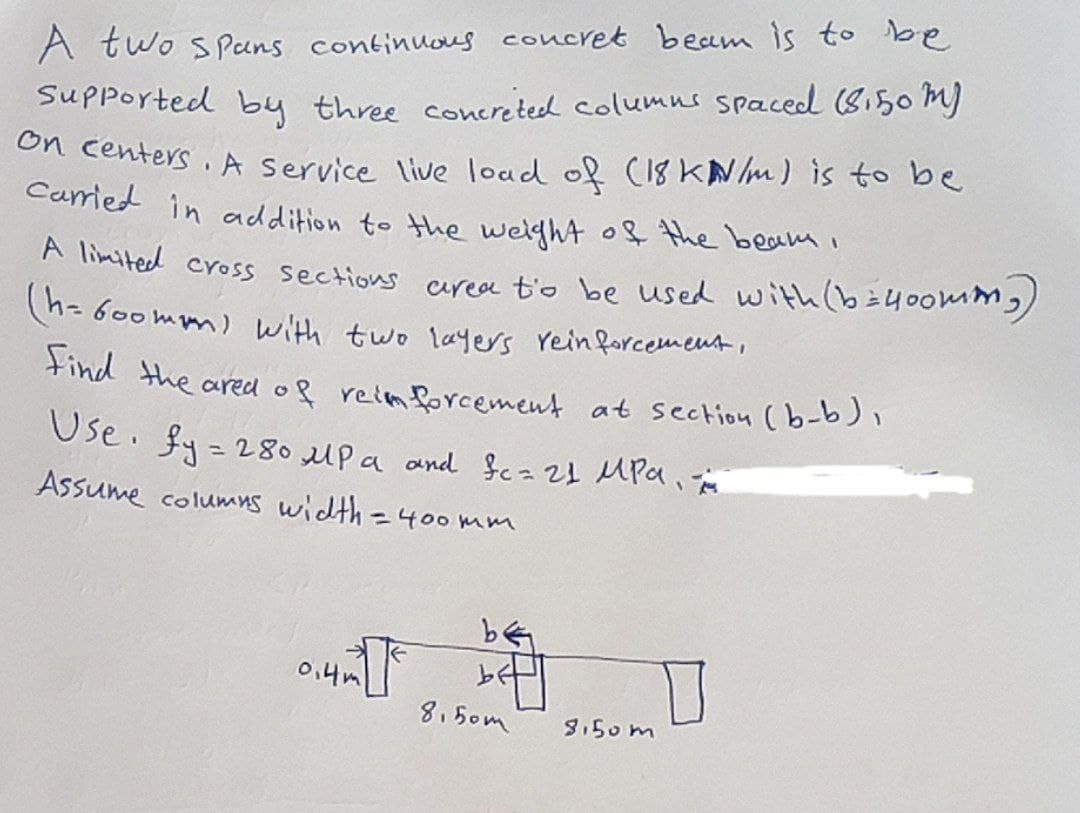 A two spans continuous concret beam is to be
supported by three concreted columns spaced (8.50 m)
on centers. A service live load of (18 KN/m) is to be
carried in addition to the weight of the beam.
A limited cross sections area to be used with (b=400mm,)
(h=600mm) with two layers reinforcement,
Find the area of reimforcement at section (b-b).
Use. fy = 280 MPa and fc = 21 MPa.
Assume columns width = 400 mm
b
0.4m
b
8.50m
8.50m